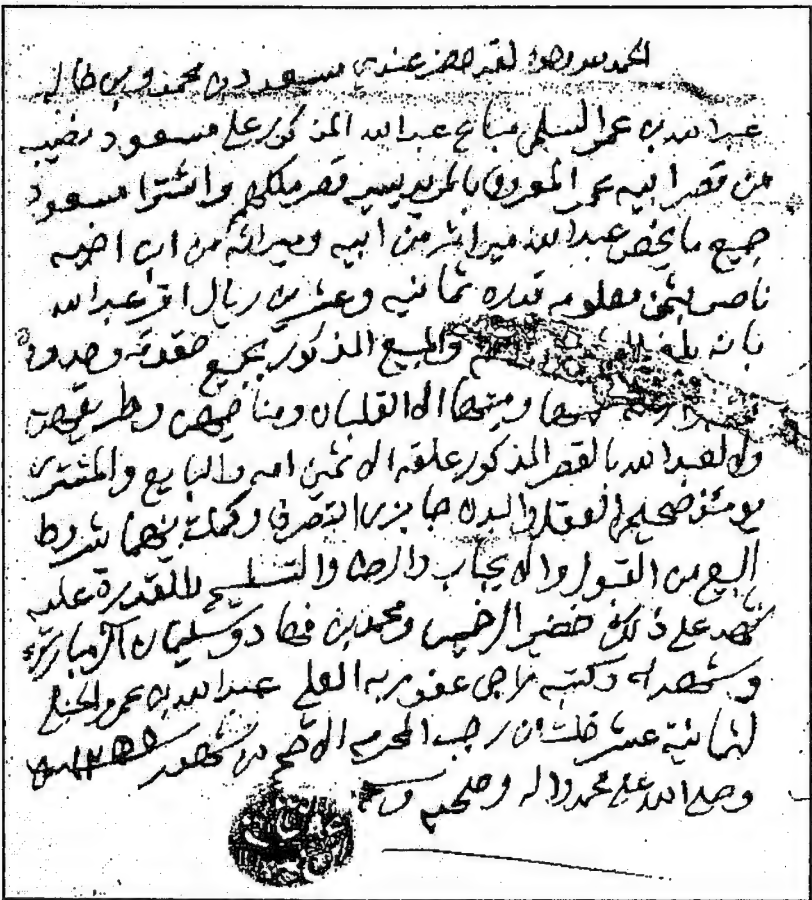 الحمد لله وحده لقد حضر عندي مسعود بن محمد وبن خاله
عبد الله بن عمر السلمي فباع عبد الله المذكور على مسعود نصيبه
من قصر ابيه عمر المعروف قصر ملكهم واشترا مسعود
جميع ما يخص عبد الله ميراثه من ابيه وميراثه من ابن اخيه
ناصر بثمن معلوم قدره ثمانيه وعشرين ريال اقر عبد الله
بانه بلغه والمبيع المذكور بجميع حقوقه وحدوده
ومنها الا القلبان وطريقهن
ولا لعبد الله بالقصر المذكور علقه الا ثمين امه والبايع والمشتري
يومئذ صحيحا العقل والبدن جايزي التصرف وكملت بينهما شروط
البيع من القبول والايجاب والرضا والتسليم للقدرة عليه
شهد على ذلك خضير الرخيص ومحمد بن فهاد وسليمان آل مبارك
وشهد به وكتبه راجي عفو ربه العلي عبد الله بن عمر
لثمانية عشر خلت من رجب المحرم من شهور
وصلى الله على محمد واله وصحبه وسلم